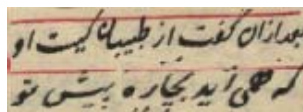 بعد ازان گفت از طبیبان کیست او
که همی آید بچاره پیش تو